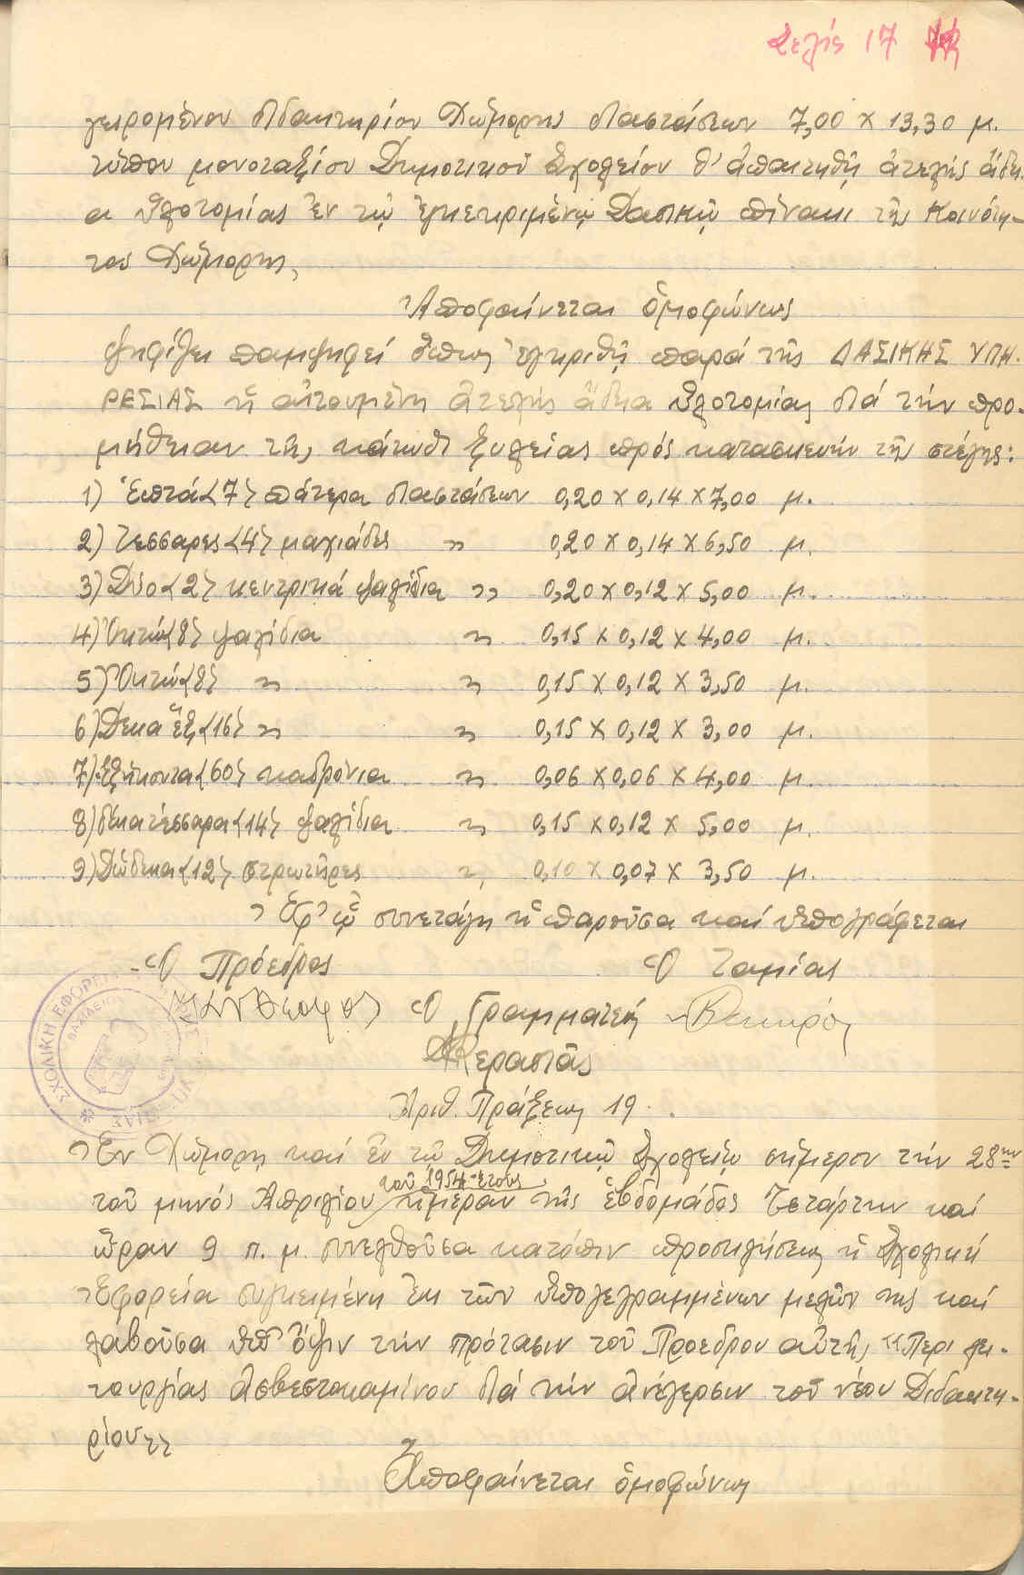 Σελίς 17
γειρομένου διδακτηρίου Χώμορης διαστάσεων 7,00 Χ 13,30 μ.
τύπου μονοταξίου Δημοτικοῦ Σχολείου θ' ἀπαιτηθῇ ἀτελής ἄδει-
α ὑλοτομίας ἐν τῷ ἐγκεκριμένῳ Δασικῷ πίνακι τῆς Κοινότη-
τος Χώμορης,
Ἀποφαίνεται ὁμοφώνως
ψηφίζει παμψηφεί ὅπως ἐγκριθῇ παρά τῆς ΔΑΣΙΚΗΣ ΥΠΗ-
ΡΕΣΙΑΣ ἡ αἰτουμένη ἀτελής ἄδεια ὑλοτομίας διά τήν προ-
μήθειαν τῆς κάτωθι ξυλείας πρός κατασκευήν τῆς στέγης:
1) Ἑπτά <7> πάτερα διαστάσεων 0,20 Χ 0,14 Χ 7,00 μ.
2) Τέσσαρες <4> μαγιάδες " 0,20 Χ 0,14 Χ 6,50 μ.
3) Δύο <2> κεντρικά ψαλίδια " 0,20 Χ 0,12 Χ 5,00 μ.
4) Ὀκτώ <8> ψαλίδια " 0,15 Χ 0,12 Χ 4,00 μ.
5) Ὀκτώ <8> " " 0,15 Χ 0,12 Χ 3,50 μ.
6) Δέκα ἕξ <16> " " 0,15 Χ 0,12 Χ 3,00 μ.
7) Ἑξήκοντα <60> καδρόνια " 0,06 Χ 0,06 Χ 4,00 μ.
8) δέκα τέσσαρα <14> ψαλίδια " 0,15 Χ 0,12 Χ 5,00 μ.
9) Δώδεκα <12> στρωτῆρες " 0,10 Χ 0,07 Χ 3,50 μ.
Ἐφ' ᾧ συνετάγη ἡ παροῦσα καί ὑπογράφεται
Ὁ Πρόεδρος Ὁ Ταμίας
Ὁ Γραμματεύς
ΣΧΟΛΙΚΗ ΕΦΟΡΕΙΑ
Ἀριθ. Πράξεως 19.
Ἐν Χώμορῃ καί ἐν τῷ Δημοτικῷ Σχολείῳ σήμερον τήν 28ην
τοῦ μηνός Ἀπριλίου τοῦ 1954 ἔτους ἡμέραν τῆς ἑβδομάδος Τετάρτην καί
ὥραν 9 π.μ. συνελθοῦσα κατόπιν προσκλήσεως ἡ Σχολική
Ἐφορεία συγκειμένη ἐκ τῶν ὑπογεγραμμένων μελῶν της καί
λαβοῦσα ὑπ' ὄψιν τήν πρότασιν τοῦ Προέδρου αὐτῆς "Περί λει-
τουργίας ἀσβεστοκαμίνου διά τήν ἀνέγερσιν τοῦ νέου Διδακτη-
ρίου"
Ἀποφαίνεται ὁμοφώνως